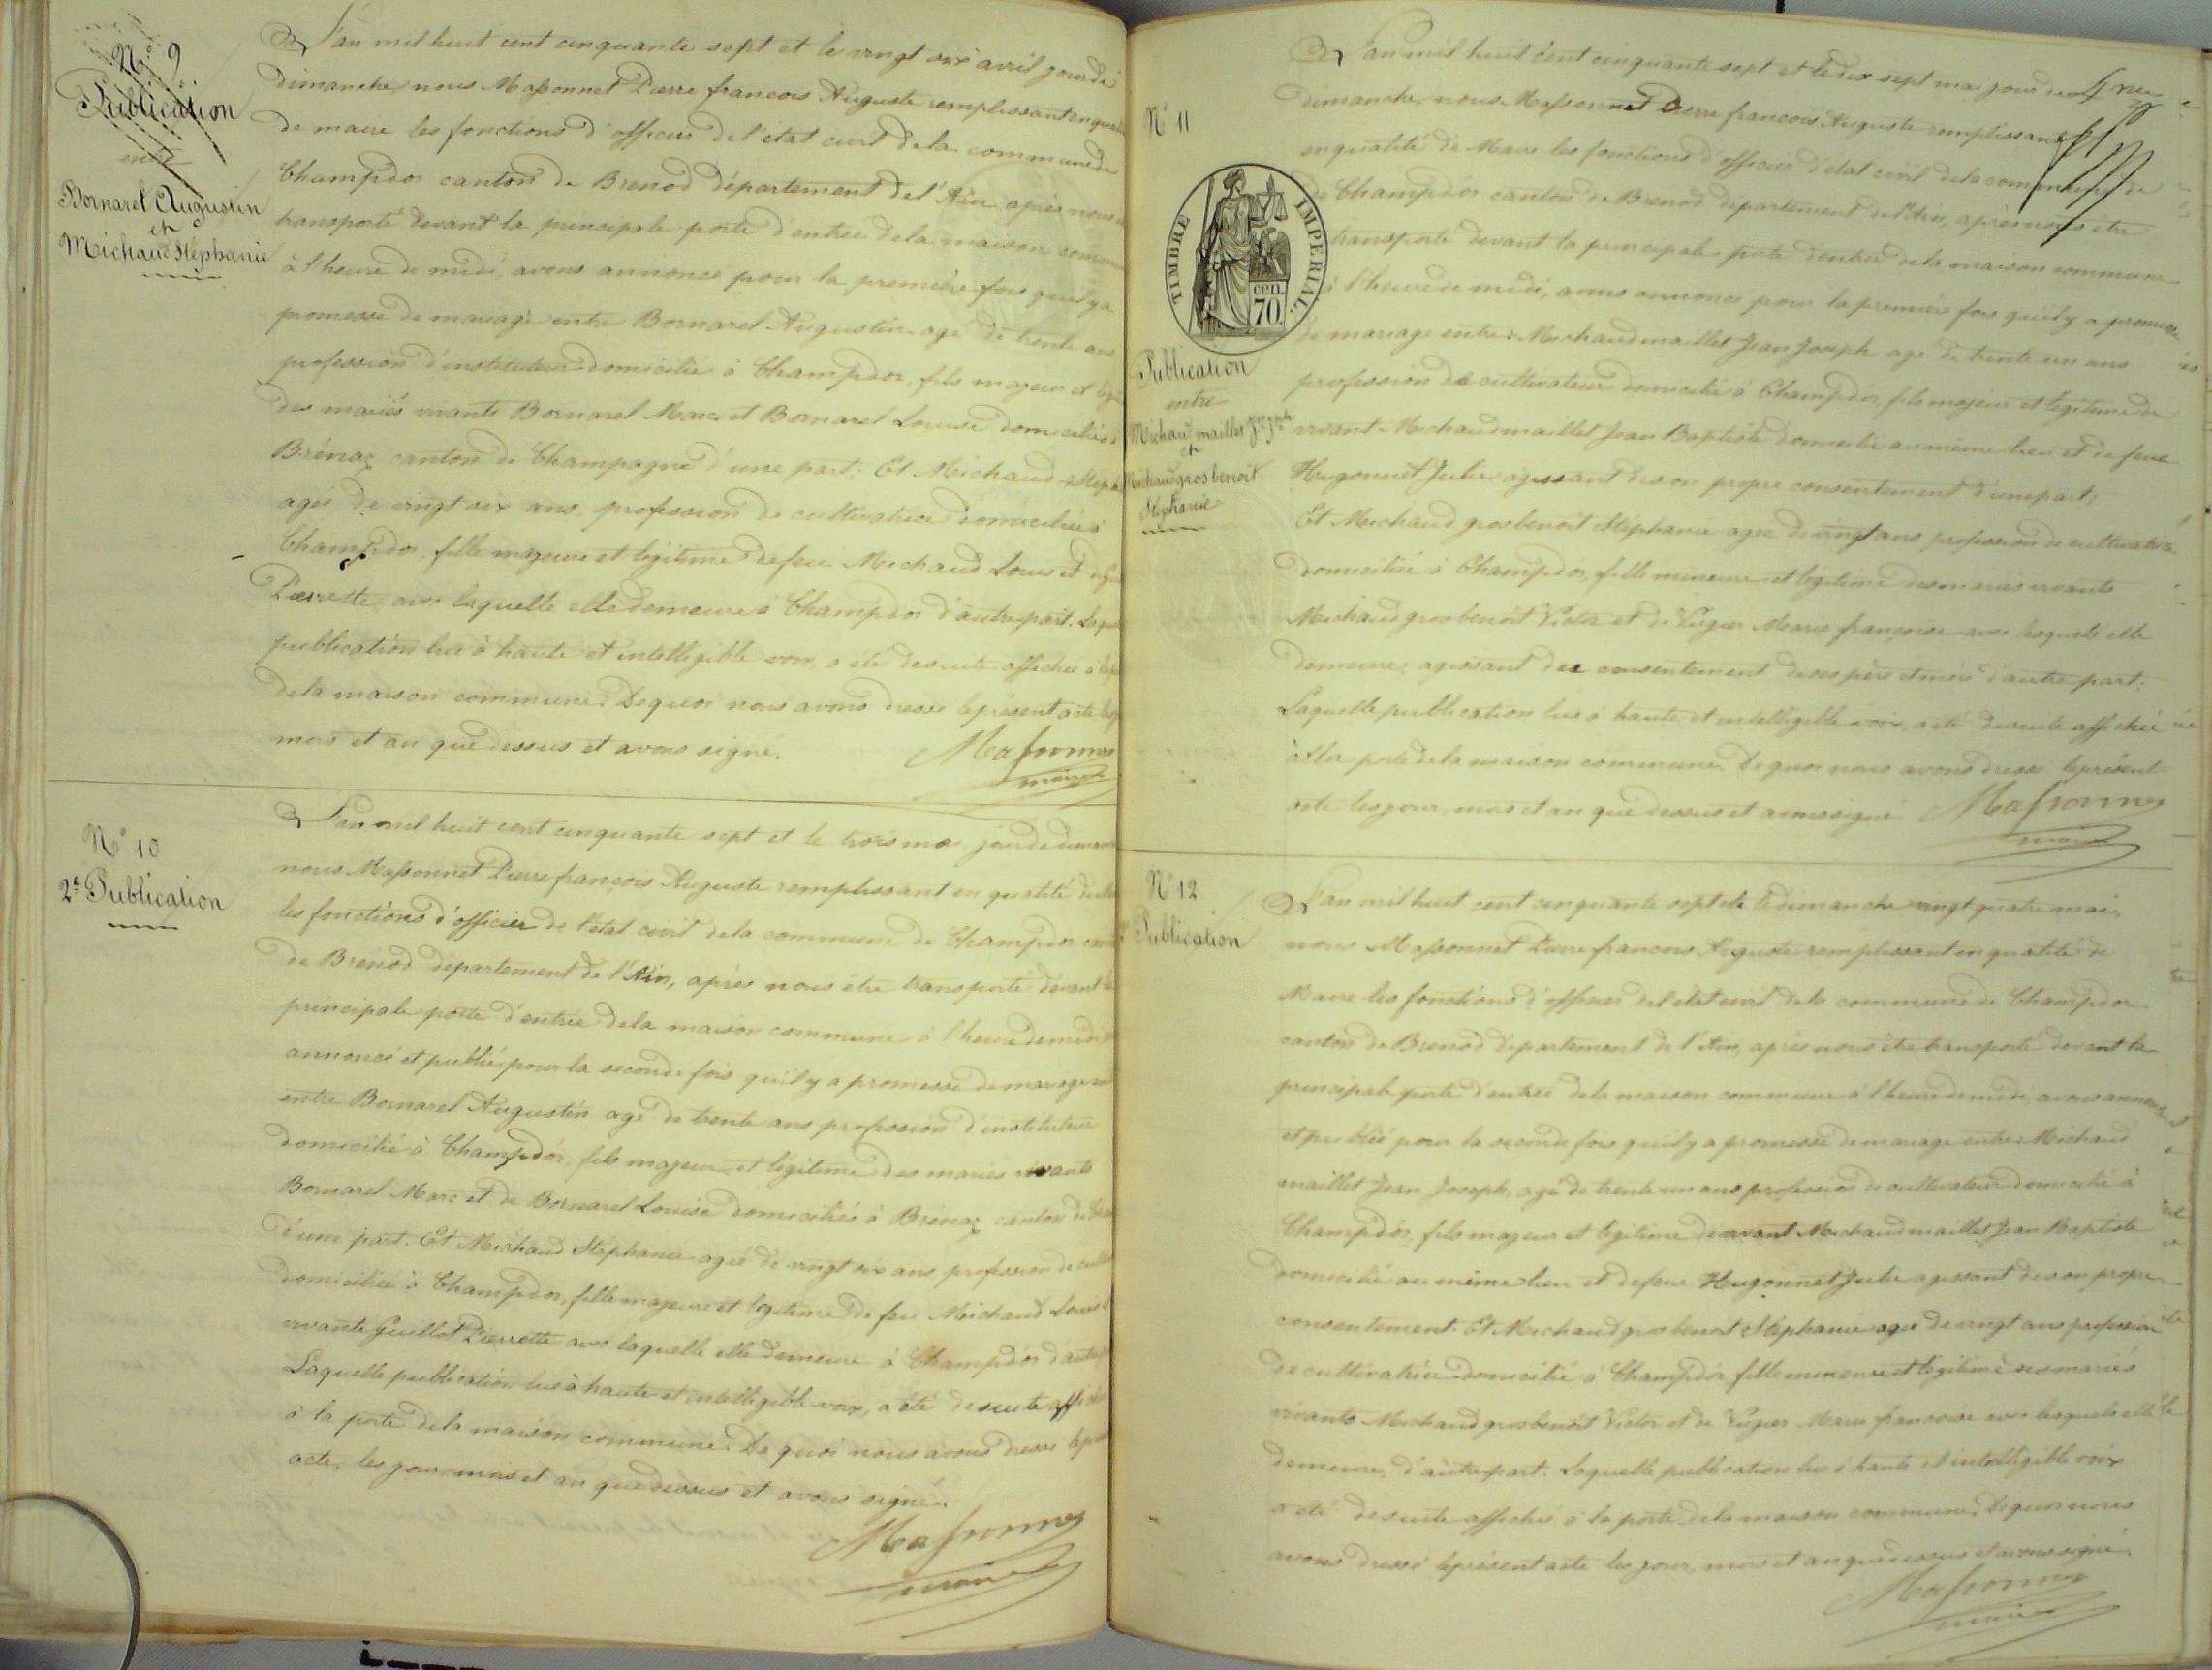 N° 9
Publication
entre
Bornarel Augustin
et
Michaud Stéphanie
L'an mil huit cent cinquante sept et le vingt six avril jour de
dimanche, nous Massonnet Pierre françois Auguste remplissant en qualité
de maire les fonctions d'officier de l'état civil de la commune de
Champdor canton de Brenod département de l'Ain après nous être
transporté devant la principale porte d'entrée de la maison commune
à l'heure de midi, avons annoncé pour la première fois qu'il y a
promesse de mariage entre Bornarel Augustin agé de trente ans
profession d'instituteur domicilié à Champdor, fils majeur et légitime
des mariés vivants Bornarel Marc et Bornarel Louise domiciliés à
Brénaz canton de Champagne d'une part. Et Michaud Stéphanie
agée de vingt six ans, profession de cultivatrice domiciliée à
Champdor, fille majeure et légitime de feu Michaud Louis et
Pierrette avec laquelle elle demeure à Champdor d'autre part. Laquelle
publication lue à haute et intelligible voix, a été de suite affichée à la porte
de la maison commune. De quoi nous avons dressé le présent acte les jour
mois et an que dessus et avons signé.
Massonnet
maire
N° 10
2e Publication
L'an mil huit cent cinquante sept et le trois mai, jour de dimanche
nous Massonnet Pierre françois Auguste remplissant en qualité de maire
les fonctions d'officier de l'état civil de la commune de Champdor canton
de Brénod département de l'Ain, après nous être transporté devant la
principale porte d'entrée de la maison commune à l'heure de midi
annoncé et publié pour la seconde fois qu'il y a promesse de mariage
entre Bornarel Augustin agé de trente ans profession d'instituteur
domicilié à Champdor, fils majeur et légitime des mariés vivants
Bornarel Marc et de Bornarel Louise domiciliés à Brénaz canton de
d'une part. Et Michaud Stéphanie agée de vingt six ans profession de
domiciliée à Champdor, fille majeure et légitime de feu Michaud Louis et
vivante Guillot Pierrette avec laquelle elle demeure à Champdor d'autre
Laquelle publication lue à haute et intelligible voix, a été de suite affichée
à la porte de la maison commune. De quoi nous avons dressé le présent
acte, les jour mois et an que dessus et avons signé.
Massonnet
maire
N° 11
TIMBRE IMPERIAL
cen.
70
Publication
entre
Michaud maillet Jn Jph
et
Michaud gros benoit
Stéphanie
L'an mil huit cent cinquante sept et le dix sept mai jour de
dimanche, nous Massonnet Pierre françois Auguste remplissant
en qualité de Maire les fonctions d'officier d'état civil de la commune de
de Champdor canton de Brenod département de l'Ain, après nous être
transporté devant la principale porte d'entrée de la maison commune
à l'heure de midi, avons annoncé pour la première fois qu'il y a promesse
de mariage entre : Michaud maillet Jean Joseph agé de trente un ans
profession de cultivateur domicilié à Champdor, fils majeur et légitime de
vivant Michaud maillet Jean Baptiste domicilié au même lieu et de feue
Hugonnet Julie agissant de son propre consentement d'une part;
Et Michaud gros benoit Stéphanie agée de vingt ans profession de cultivatrice
domiciliée à Champdor, fille mineure et légitime des mariés vivants
Michaud gros benoit Victor et de Vugier Marie françoise avec lesquels elle
demeure, agissant du consentement de ses père et mère d'autre part.
Laquelle publication lue à haute et intelligible voix, a été de suite affichée
à la porte de la maison commune. De quoi nous avons dressé le présent
acte les jour, mois et an que dessus et avons signé
Massonnet
maire
N° 12
2e Publication
L'an mil huit cent cinquante sept et le dimanche vingt quatre mai,
nous Massonnet Pierre françois Auguste remplissant en qualité de
Maire les fonctions d'officier de l'état civil de la commune de Champdor
canton de Brenod département de l'Ain, après nous être transporté devant la
principale porte d'entrée de la maison commune à l'heure de midi, avons annoncé
et publié pour la seconde fois qu'il y a promesse de mariage entre Michaud
maillet Jean Joseph, agé de trente un ans profession de cultivateur domicilié à
Champdor, fils majeur et légitime de vivant Michaud maillet Jean Baptiste
domicilié au même lieu et de feue Hugonnet Julie agissant de son propre
consentement. Et Michaud gros benoit Stéphanie agée de vingt ans profession
de cultivatrice domiciliée à Champdor fille mineure et légitime des mariés
vivants Michaud gros benoit Victor et de Vugier Marie françoise avec lesquels elle
demeure, d'autre part. Laquelle publication lue à haute et intelligible voix
a été de suite affichée à la porte de la maison commune. De quoi nous
avons dressé le présent acte les jour, mois et an que dessus et avons signé.
Massonnet
maire